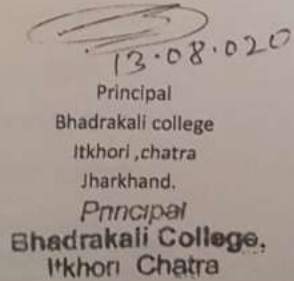 13.08.020
Principal
Bhadrakali college
Itkhori ,chatra
Jharkhand.
Principal
Bhadrakali College,
Itkhori Chatra